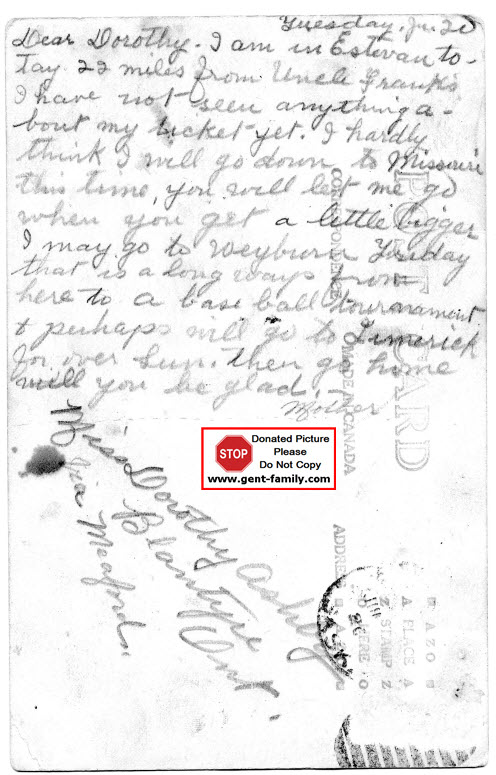 Tuesday, Ju. 20
Dear Dorothy. I am in Estevan to-
tay. 22 miles from Uncle Frank's
I have not seen anything a-
bout my ticket yet. I hardly
think I will go down to Missouri
this time, you will let me go
when you get a little bigger
I may go to Weyburn Friday
that is a long ways from
here to a base ball tournament
& perhaps will go to Limerick
for over Sun. then go home
will you be glad.
Mother
Miss Dorothy Ashley
Blantyre
Ont.
Via Meaford.
POST CARD
CORRESPONDENCE
MADE IN CANADA
ADDRESS
AZO
PLACE
STAMP
HERE
STOP
Donated Picture
Please
Do Not Copy
www.gent-family.com